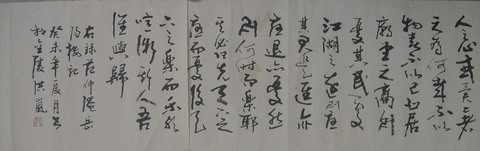 人之心或異二者
之為何哉不以
物喜不以己悲居
廟堂之高則
憂其民處
江湖之遠則憂
其君是進亦
憂退亦憂然
則何時而樂耶
其必曰先天下之
憂而憂後天
下之樂而樂乎
噫微斯人吾
誰與歸
右錄范仲淹岳
陽樓記
癸未年夏月書